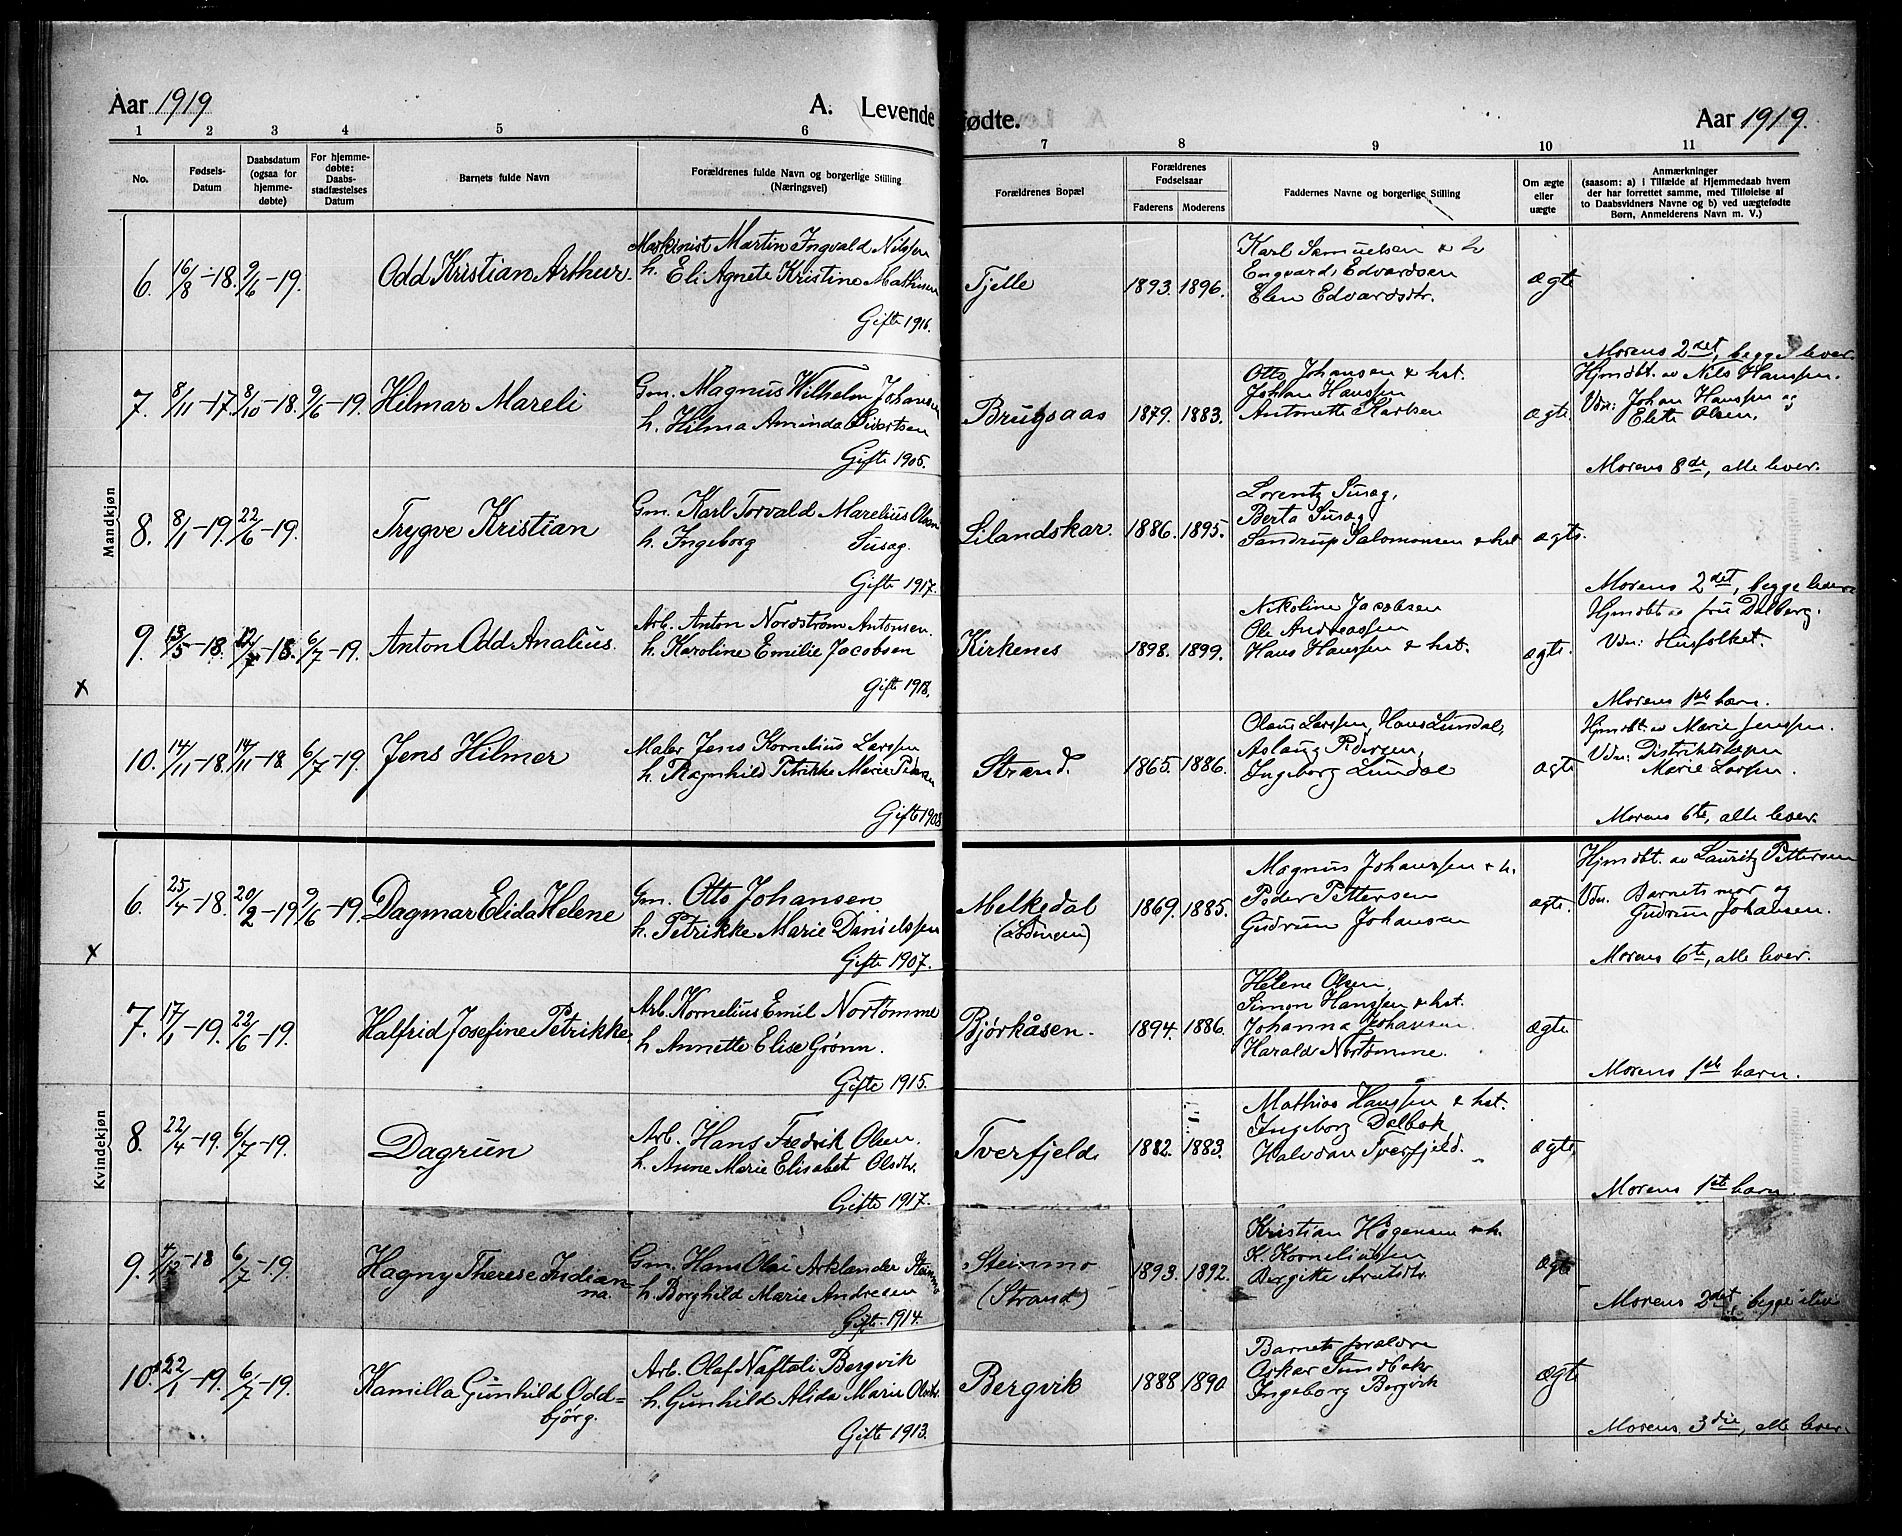 Aar 1919
A. Levende
fødte.
Aar 1919.
1 2 3 4 5 6 7 8 9 10 11
No.
Fødsels-
Datum
Daabsdatum
(ogsaa for
hjemme-
døbte)
For hjemme-
døbte:
Daabs-
stadfæstelses
Datum
Barnets fulde Navn
Forældrenes fulde Navn og borgerlige Stilling
(Næringsvei)
Forældrenes Bopæl
Forældrenes
Fødselsaar
Faderens Moderens
Faddernes Navne og borgerlige Stilling
Om ægte
eller
uægte
Anmærkninger
(saasom: a) i Tilfælde af Hjemmedaab hvem
der har forrettet samme, med Tilføielse af
to Daabsvidners Navne og b) ved uægtefødte
Børn, Anmelderens Navn m. V.)
Mandkjøn
6. 16/8-18. 9/6-19. Odd Kristian Arthur.
Maskinist Martin Ingvald Nilssen
h. Eli Agnete Kristine Mathisen
Gifte 1916.
Tjelle 1893. 1896.
Karl Samuelsen & h
Engvard Edvardsen
Elen Edvardsdtr.
ægte
Morens 2det, begge lever.
7. 8/11-17. 8/10-18. 9/6-19. Hilmar Mareli
Gm. Magnus Wilhelm Johansen
h. Hilma Aminda Sivertsen
Gifte 1905.
Brugsaas 1879. 1883.
Otto Johansen & hst.
Johan Hanssen
Antonette Karlsen
ægte
Hjmdbt. av Nils Hanssen.
Vdn: Johan Hanssen og
Elette Olsen.
Morens 8de, alle lever.
8. 8/1-19. 22/6-19. Trygve Kristian
Gm. Karl Torvald Marelius Olsen
h. Ingeborg Susag.
Gifte 1917.
Lilandskar. 1886. 1895.
Lorentz Susag,
Berta Susag
Sandrup Salomonsen & hst
ægte.
Morens 2det, begge lever
9. 13/5-18. 12/7-18. 6/7-19. Anton Odd Analius.
Arb. Anton Nordstrøm Antonsen.
h. Karoline Emilie Jacobsen
Gifte 1918.
Kirkenes 1898. 1899.
Nikoline Jacobsen
Ole Andreassen
Hans Hanssen & hst.
ægte.
Hjmdbt av fru Dalberg.
Vdn: Husfolket.
Morens 1ste barn.
x
10. 14/11-18. 14/11-18 6/7-19. Jens Hilmer
Maler Jens Kornelius Larssen
h. Ragnhild Petrikke Marie Pedersen
Gifte 1908
Strand. 1865. 1886.
Olaus Larssen, Hans Lundal,
Aslaug Pedersen,
Ingeborg Lundal
ægte
Hjmdbt. av Marie Jenssen.
Vdn: Distriktslægen
Marie Larsen.
Morens 6te, alle lever.
Kvindekjøn
6. 25/4-18. 20/2-19 9/6-19. Dagmar Elida Helene
Gm. Otto Johansen
h. Petrikke Marie Danielssen
Gifte 1907.
Melkedal
(Lødingen)
1869. 1885.
Magnus Johanssen & h.
Peder Pettersen
Gudrun Johansen
ægte.
Hjmdbt. av Lauritz Pettersen
Vdn. Barnets mor og
Gudrun Johansen.
Morens 6te, alle lever.
x
7. 17/1-19. 22/6-19. Halfrid Josefine Petrikke
Arb. Kornelius Emil Nortømme
h Annette Elise Grønn.
Gifte 1915.
Bjørkåsen. 1894. 1886.
Helene Olsen,
Simon Hanssen & hst.
Johanna Johansen.
Harald Nortømme.
ægte
Morens 1ste barn.
8. 22/4-19. 6/7-19. Dagrun
Arb. Hans Fredrik Olsen.
h. Anne Marie Elisabet Olsdtr.
Gifte 1917.
Tverfjeld. 1882. 1883.
Mathias Hanssen & hst.
Ingeborg Dalbak
Halvdan Tverfjeld.
ægte,
Morens 1ste barn.
9. 4/12-18 6/7-19. Hagny Therese Indian-
na.
Gm. Hans Olai Arklander Steinmo
h. Borghild Marie Andresen
Gifte. 1914.
Steinmo
(Strand)
1893. 1892.
Kristian Hågensen & h.
K. Korneliussen
Bergitte Arntsdtr.
ægte
Morens 2det, begge
10. 22/1-19. 6/7-19. Kamilla Gunhild Odd-
bjørg.
Arb. Olaf Naftali Bergvik
h. Gunhild Alida Marie Olsdtr.
Gifte 1913.
Bergvik 1888 1890
Barnets forældre
Oskar Sundbakk
Ingeborg Bergvik
ægte
Morens 3die, alle lever.